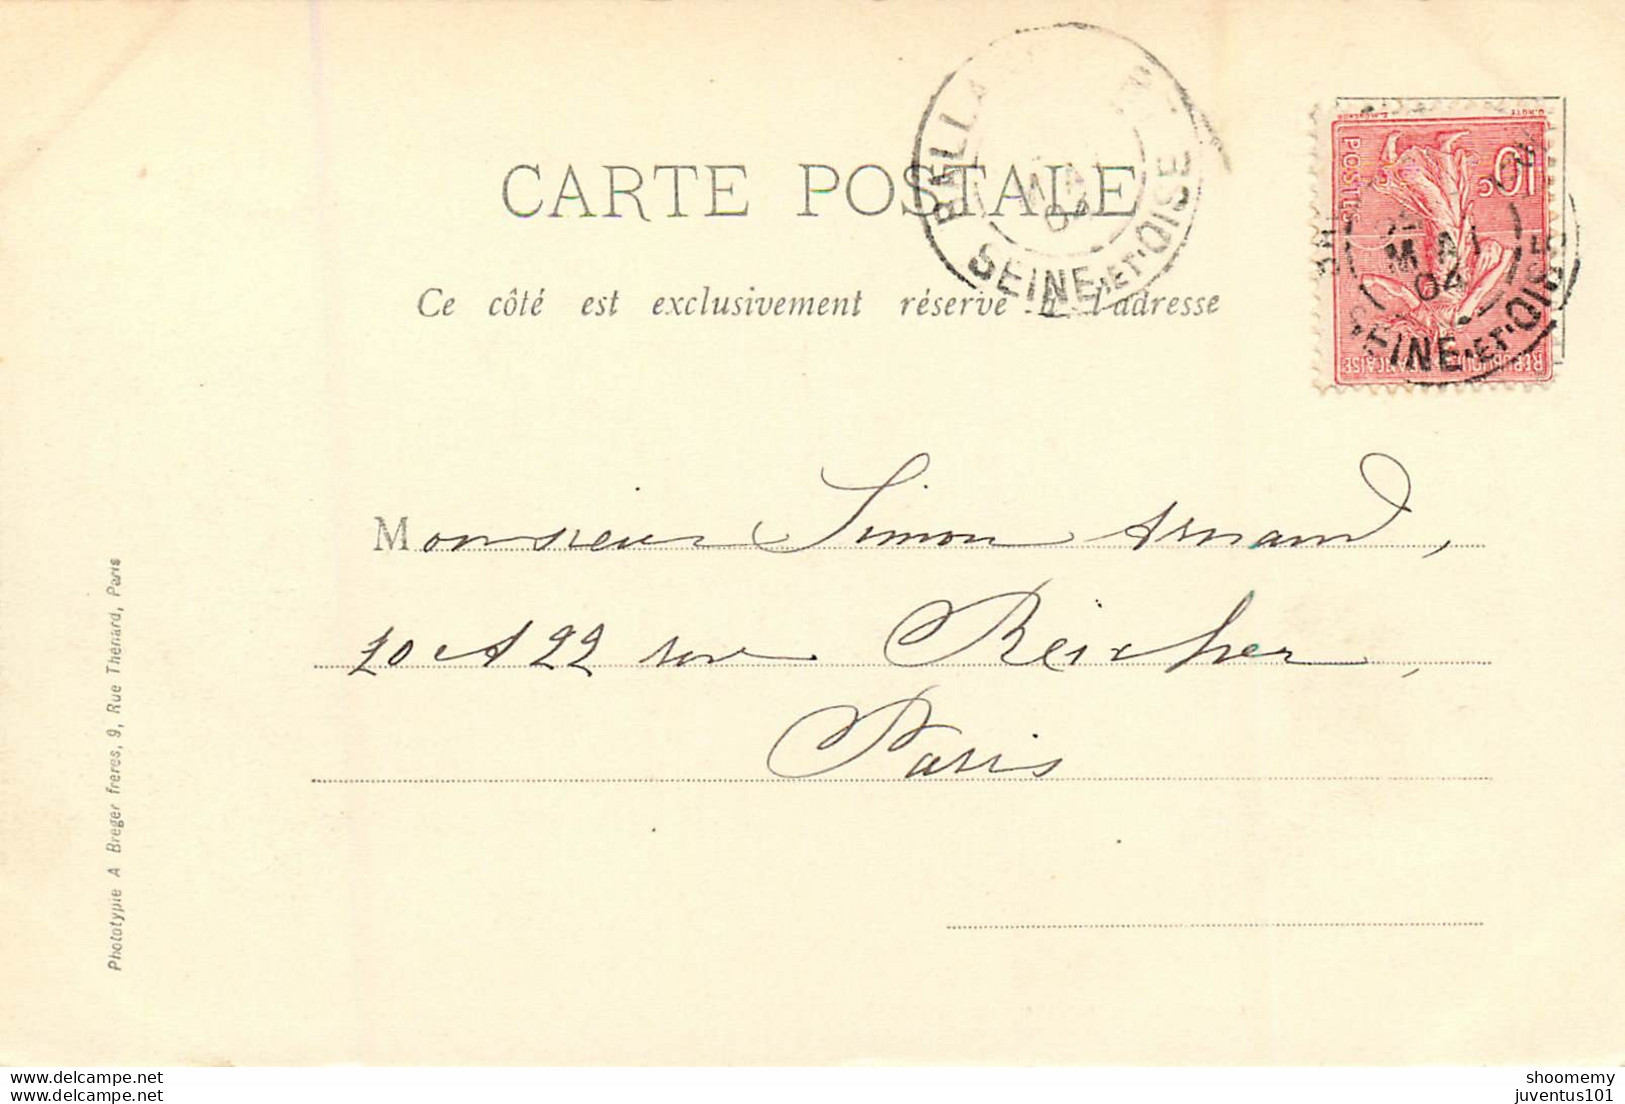 CARTE POSTALE
Ce côté est exclusivement réservé à l'adresse
BALLA
MAI
04
SEINE-ET-OISE
10c
POSTES
MAI
04
SEINE-ET-OISE
Monsieur Simon Armand,
20 et 22 rue Reicher,
Paris
Phototypie A Breger frères, 9, Rue Thénard, Paris
delcampe.net
delcampe.net
shoomemy
juventus101